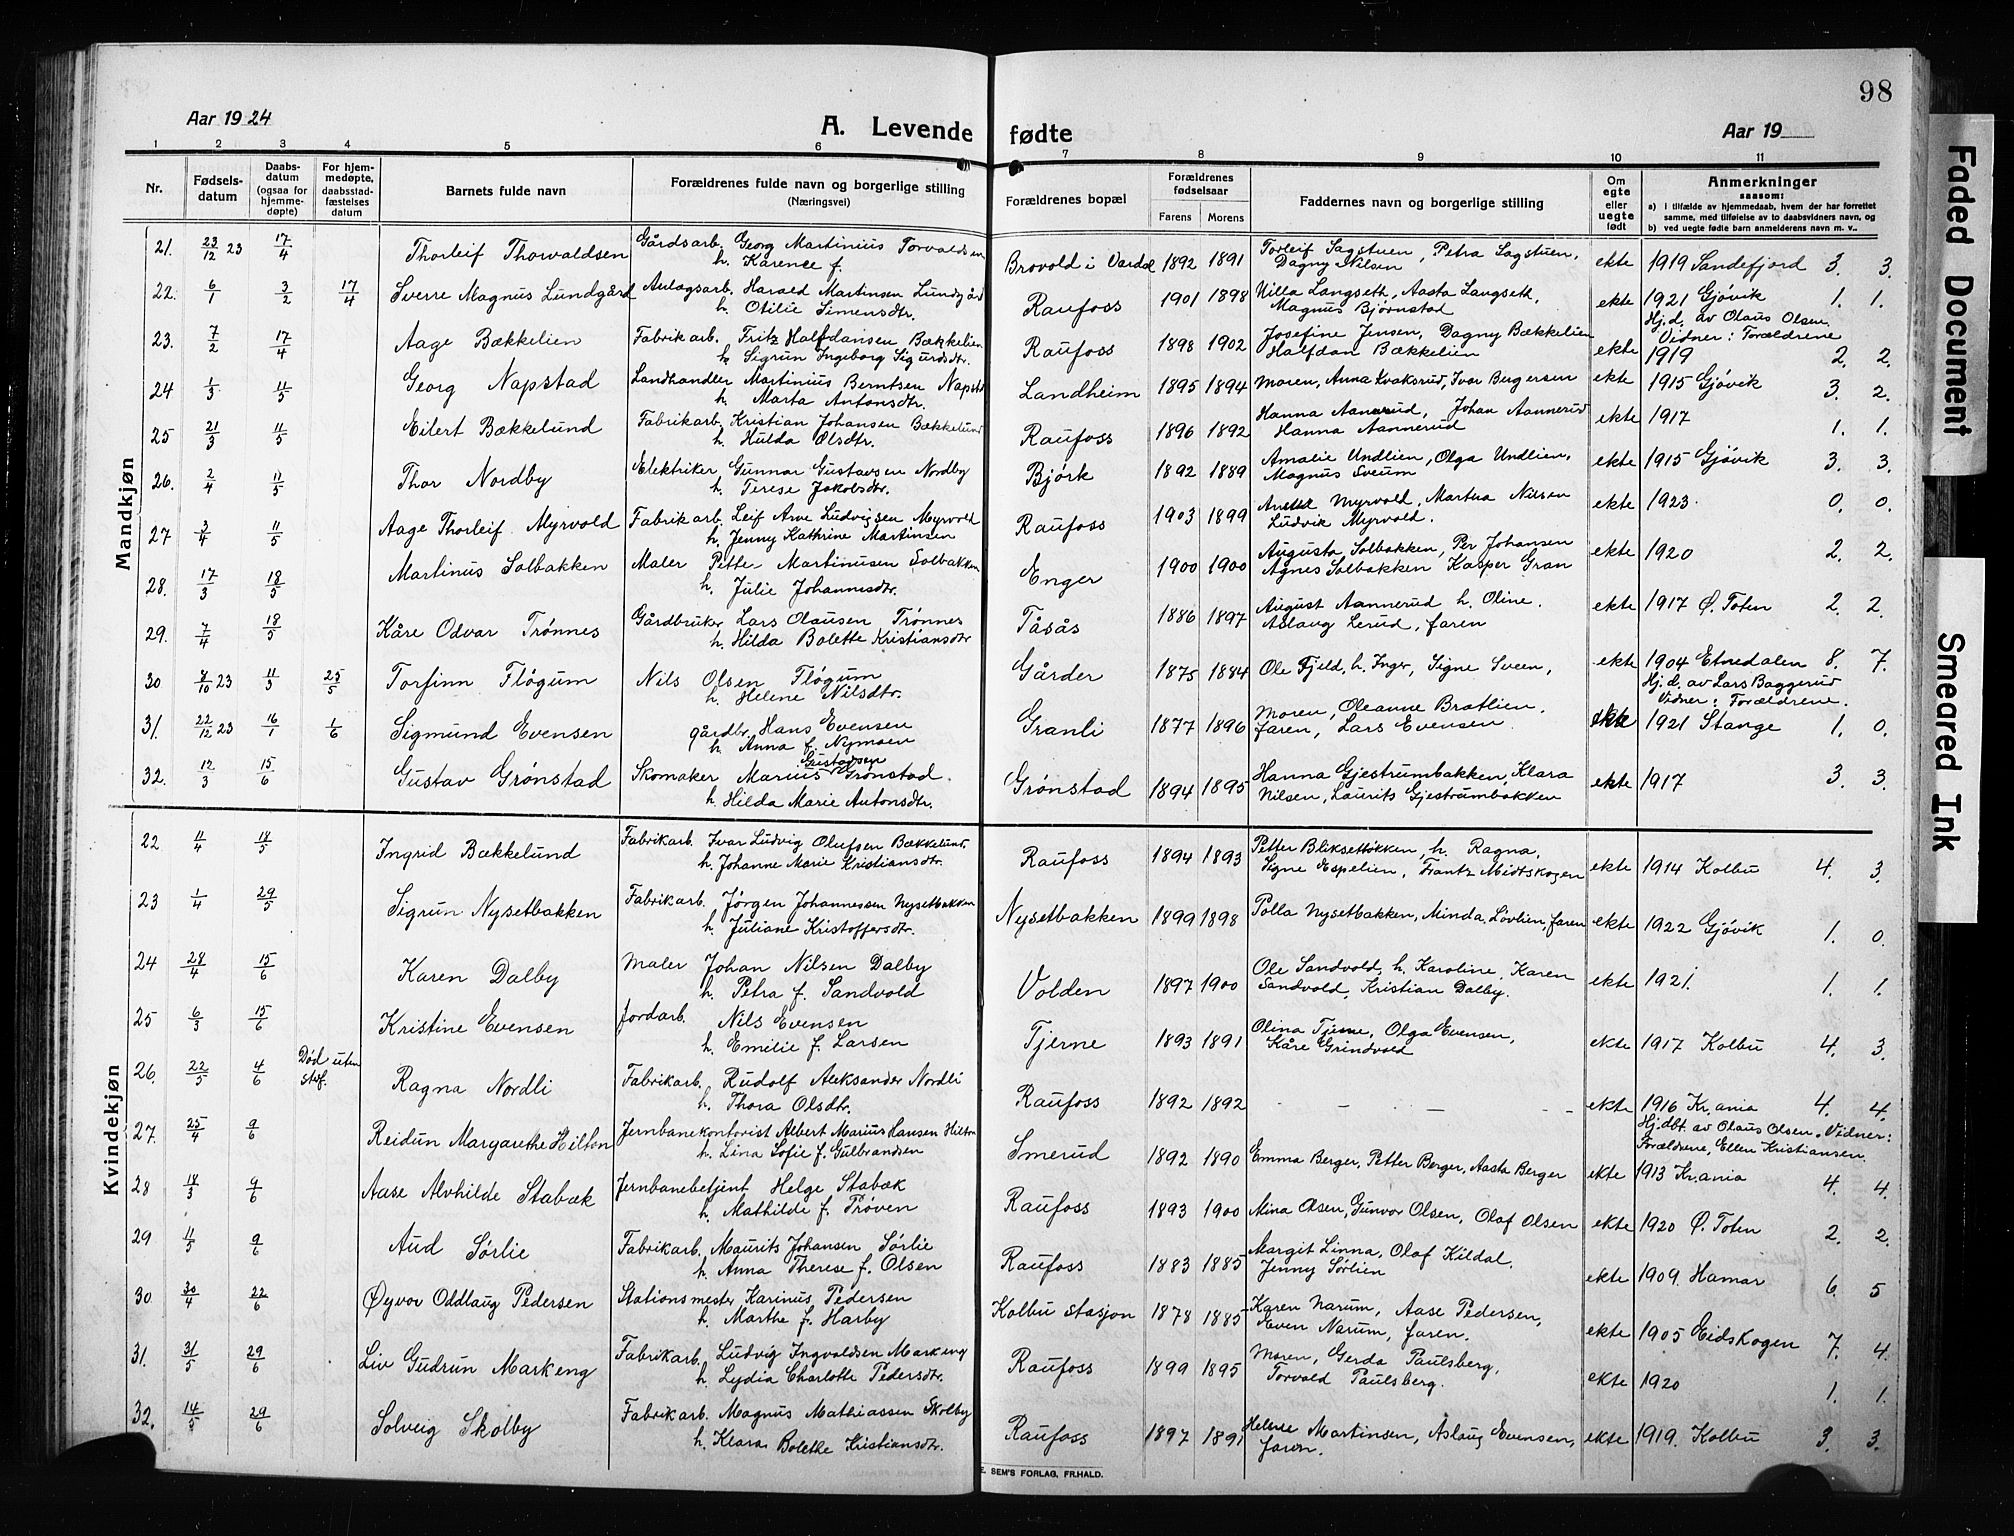 98
Aar 1924
A. Levende fødte
Aar 19
1 2 3 4 5 6 7 8 9 10 11
Nr.
Fødsels-datum
Daabs-datum (ogsaa for hjemme-døpte)
For hjem-medøpte, daabsstad-fæstelses datum
Barnets fulde navn
Forældrenes fulde navn og borgerlige stilling
(Næringsvei)
Forældrenes bopæl
Forældrenes fødselsaar
Farens Morens
Faddernes navn og borgerlige stilling
Om egte eller uegte født
Anmerkninger
saasom:
a) i tilfælde av hjemmedaab, hvem der har forrettet samme, med tilføielse av to daabsvidners navn, og
b) ved uegte fødte barn anmelderens navn m. v..
Mandkjøn
21. 23/12 23 17/4 Thorleif Thorvaldsen Gårdsarb. Georg Martinius Torvaldsen
h. Karence f. Brovold i Vardal 1892 1891 Torleif Sagstuen, Petra Sagstuen,
Dagny Nilsen ekte 1919 Sandefjord 3. 3.
22. 6/1 3/2 17/4 Sverre Magnus Lundgård Anlagsarb. Harald Martinsen Lundgård
h. Otilie Simensdtr. Raufoss 1901 1898 Milla Langseth, Aasta Langseth,
Magnus Bjørnstad ekte 1921 Gjøvik 1. 1.
Hj.d. av Olaus Olsen
Vidner: Forældrene
23. 7/2 17/4 Aage Bækkelien Fabrikarb. Fritz Halfdansen Bækkelien
h. Sigrun Ingeborg Sigurdsdtr. Raufoss 1898 1902 Josefine Jensen, Dagny Bækkelien
Halfdan Bækkelien ekte 1919 2. 2.
24 1/3 11/5 Georg Napstad Landhandler Martinius Berntsen Napstad
h. Marta Antonsdtr. Landheim 1895 1894 Moren, Anna Kvaksrud, Ivar Bergersen ekte 1915 Gjøvik 3. 2.
25 21/3 11/5 Eilert Bækkelund Fabrikarb. Kristian Johansen Bækkelund
h. Hulda Olsdtr. Raufoss 1896 1892 Hanna Aannerud, Johan Aannerud
Hanna Aannerud ekte 1917 1. 1.
26. 2/4 11/5 Thor Nordby Elektriker Gunnar Gustavsen Nordby
h. Terese Jakobsdtr. Bjørk 1892 1889 Amalie Undlien, Olga Undlien,
Magnus Sveum ekte 1915 Gjøvik 3. 3.
27 3/4 11/5 Aage Thorleif Myrvold Fabrikarb. Leif Arve Ludvigsen Myrvold
h. Jenny Kathrine Martinsen Raufoss 1903 1899 Myrvold, Martha Nilsen
Ludvik Myrvold. ekte 1923. 0. 0.
28. 17/3 18/5 Martinus Solbakken Maler Petter Martinusen Solbakken
h. Julie Johannesdtr. Enger 1900 1900 Augusta Solbakken, Per Johansen
Agnes Solbakken Kasper Gran ekte 1920 2. 2.
29. 7/4 18/5 Kåre Odvar Trønnes Gårdbruker Lars Olausen Trønnes
h. Hilda Bolette Kristiansdtr Tåsås 1886 1897 August Aannerud h. Oline.
Aslaug Lerud, faren ekte 1917 Ø. Toten 2. 2.
30 8/10 23 11/3 25/5 Torfinn Fløgum Nils Olsen Fløgum
h. Helene Nilsdtr. Gårder 1875 1884 Ole Fjeld, h. Inger, Signe Sveen, ekte 1904 Etnedalen 8. 7.
Hj.d. av Lars Baggerud
Vidner: Forældrene.
31. 22/12 23 16/1 1/6 Sigmund Evensen gårdbr. Hans Evensen
h. Anna f. Nymoen Granli 1877 1896 Moren, Oleanne Bratlien.
faren, Lars Evensen. ekte 1921 Stange 1. 0.
32. 12/3 15/6 Gustav Grønstad Skomaker Marius Gustavsen Grønstad.
h. Hilda Marie Antonsdtr. Grønstad 1894 1895 Hanna Gjestrumbakken, Klara
Nilsen, Laurits Gjestrumbakken ekte 1917 3. 3.
Kvindekjøn
22 11/4 18/5 Ingrid Bækkelund Fabrikarb. Ivar Ludvig Olufsen Bækkelund
h. Johanne Marie Kristiansdtr. Raufoss 1894 1893 Petter Bliksetløkken, h. Ragna,
Signe Espelien, Frantz Midtskogen ekte 1914 Kolbu 4. 3.
23 1/4 29/5 Sigrun Nysetbakken Fabrikarb. Jørgen Johannessen Nysetbakken
h. Juliane Kristoffersdtr. Nysetbakken 1899 1898 Polla Nysetbakken, Minda Løvlien, faren ekte 1922 Gjøvik 1. 0.
24 28/4 15/6 Karen Dalby Maler Johan Nilsen Dalby
h. Petra f. Sandvold Volden 1897 1900 Ole Sandvold, h. Karoline, Karen
Sandvold, Kristian Dalby. ekte 1921. 1. 1.
25 6/3 15/6 Kristine Evensen Jordarb. Nils Evensen
h. Emilie f. Larsen Tjerne 1893 1891 Olina Tjerne, Olga Evensen,
Kåre Grindvold ekte 1917 Kolbu 4. 3.
26. 22/5 4/6 Død uten stf. Ragna Nordli Fabrikarb. Rudolf Aleksander Nordli
h. Thora Olsdtr. Raufoss 1892 1892 – – – ekte 1916 Kr.ania 4. 4.
Hj.dbt av Olaus Olsen. Vidner:
Forældrene, Ellen Kristiansen.
27. 25/4 9/6 Reidun Margarethe Hilton Jernbanekontorist Albert Marius Hansen Hilton
h. Lina Sofie f. Gulbrandsen Smerud 1892 1890 Emma Berger, Petter Berger, Aasta Berger ekte 1913 Kr.ania 4. 4.
28 18/3 9/6 Aase Alvhilde Stabæk Jernbanebetjent Helge Stabæk
h. Mathilde f. Prøven Raufoss 1893 1900 Mina Olsen, Gunvor Olsen, Olaf Olsen ekte 1920 Ø. Toten 2. 2.
29 11/5 9/6 Aud Sørlie Fabrikarb. Maurits Johansen Sørlie
h. Anna Therese f. Olsen Raufoss 1883 1885 Margit Linna, Olaf Kildal,
Jenny Sørlien ekte 1909. Hamar 6. 5
30 30/4 22/6 Øyvor Oddlaug Pedersen Stationsmester Karinus Pedersen
h. Marthe f. Harby Kolbu stasjon 1878 1885 Karen Narum, Aase Pedersen,
Even Narum, faren. ekte 1905 Eidskogen 7. 4.
31. 31/5 29/6 Liv Gudrun Markeng Fabrikarb. Ludvig Ingvaldsen Markeng
h. Lydia Charlotte Pedersdtr. Raufoss 1899 1895 Moren, Gerda Paulsberg,
Torvald Paulsberg. ekte 1920 1. 1.
32. 14/5 29/6 Solveig Skolby Fabrikarb. Magnus Mathiassen Skolby
h. Klara Bolette Kristiansdtr. Raufoss 1897 1891 Helene Martinsen, Aslaug Evensen,
faren. ekte 1919. Kolbu 3. 3.
E. SEM'S FORLAG, FR.HALD.
Faded Document
Smeared Ink